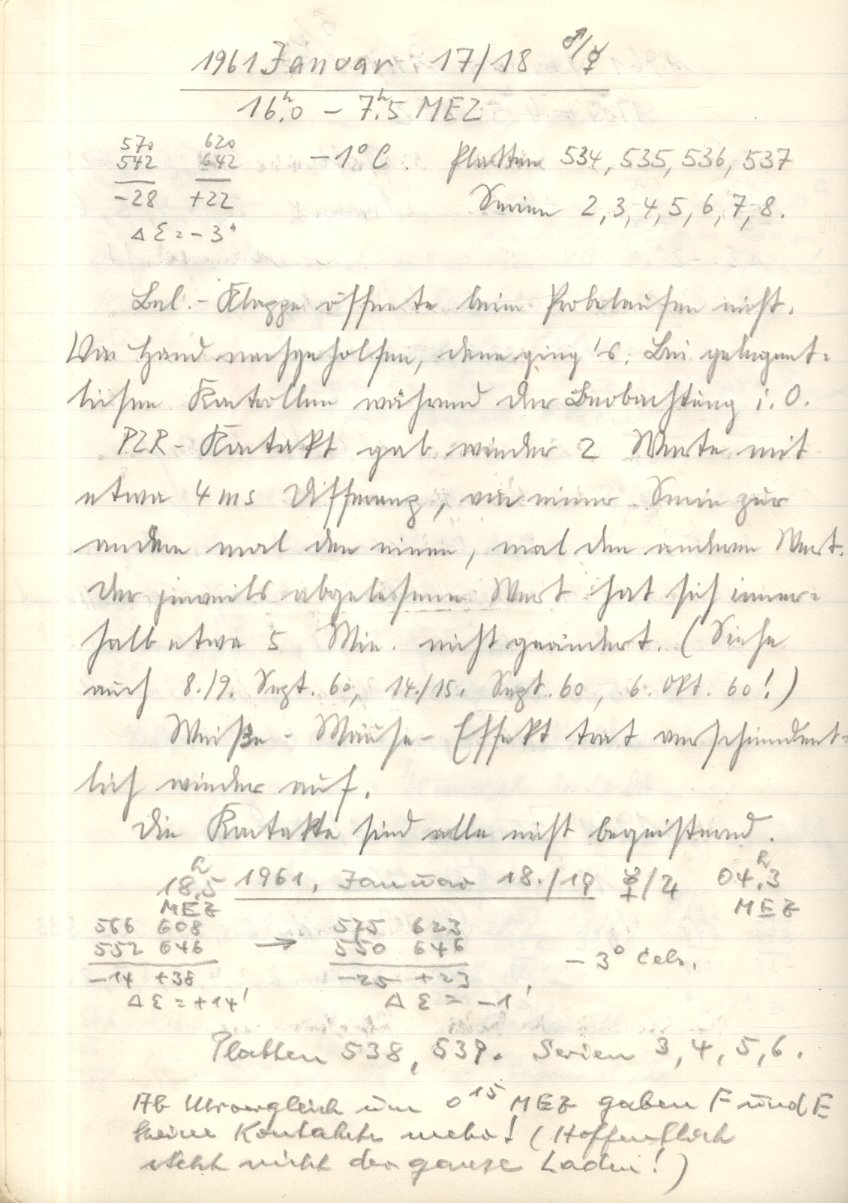 1961 Januar 17/18 ♂/☿
16ʰ.0 – 7ʰ.5 MEZ
570 620
542 642
-28 +22
Δ Ɛ = -3'
-1°C. Platten 534, 535, 536, 537
Serien 2, 3, 4, 5, 6, 7, 8.
Bel.-Klappe öffnete beim Probelaufen nicht.
Von Hand nachgeholfen, dann ging's. Bei gelegent-
lichen Kontrollen während der Beobachtung i.O.
PZR-Kontakt gab wieder 2 Werte mit
etwa 4 ms Differenz, von einer Serie zur
andern mal den einen, mal den anderen Wert.
Der jeweils abgelesene Wert hat sich inner-
halb etwa 5 Min. nicht geändert. (Siehe
auch 8./9. Sept. 60, 14./15. Sept. 60, 6. Okt. 60!)
Weiße-Mäuse-Effekt trat verschiedent-
lich wieder auf.
Die Kontakte sind alle nicht begeisternd.
18ʰ.5 MEZ 1961, Januar 18./19 ☿/♃ 04ʰ.3 MEZ
566 608 → 575 623
552 646 550 646
-14 +38 -25 +23
Δ Ɛ = +14' Δ Ɛ = -1'
-3° Cels.
Platten 538, 539. Serien 3, 4, 5, 6.
Ab Uhrvergleich um 0¹⁵ MEZ gaben F und E
keine Kontakte mehr! (Hoffentlich
steht nicht der ganze Laden!)